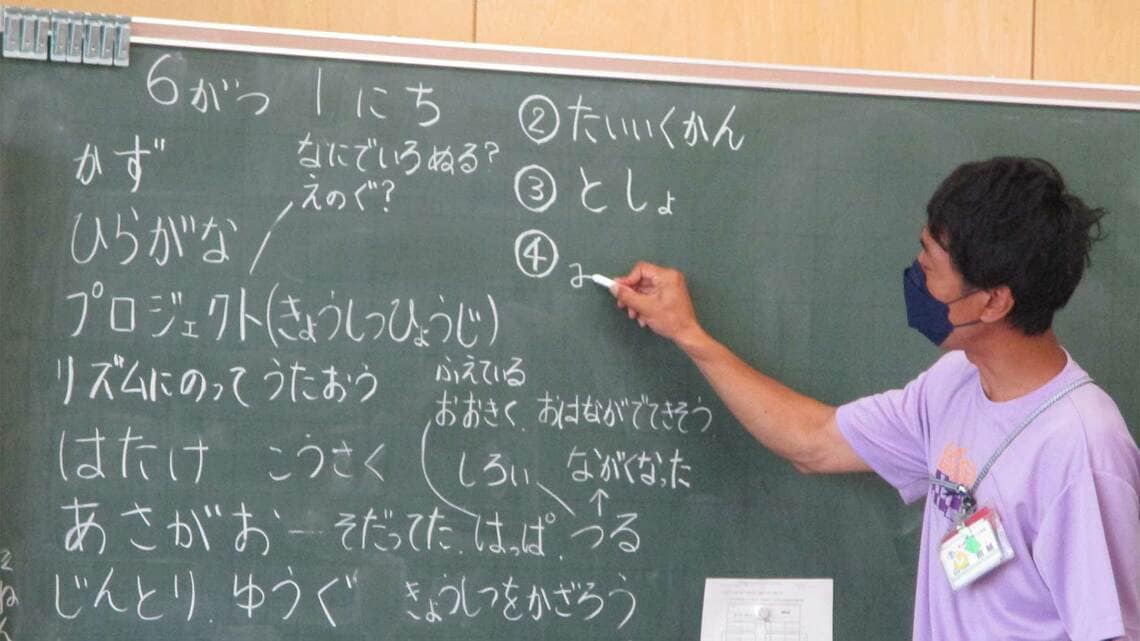 6がつ 1にち
かず
なにでいろぬる?
えのぐ?
ひらがな
プロジェクト(きょうしつひょうじ)
リズムにのって うたおう
ふえている
おおきく. おはながでてきそう
はたけ こうさく
しろい ながくなった
↑
あさがおーそだってた.はっぱ.つる
じんとり.ゆうぐ きょうしつをかざろう
② たいいくかん
③ としょ
④